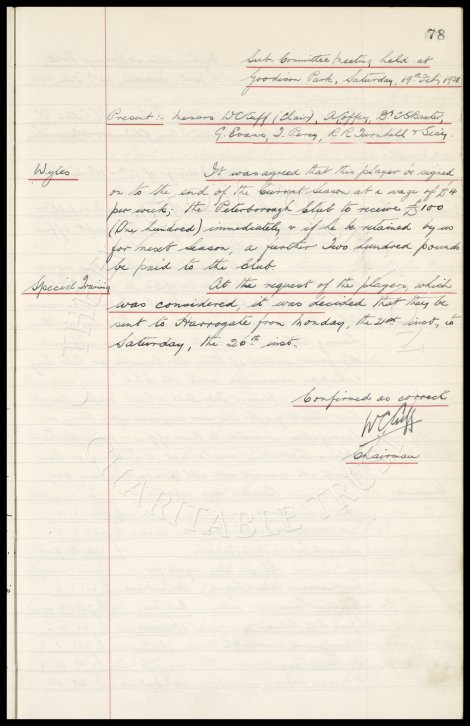 78
Sub Committee Meeting held at
Goodison Park, Saturday, 19th Feb, 1938
Present:- Messrs W C Cuff (Chair), A Coffey, Dr C S Baxter,
G. Evans, J. Percy, R. R. Turnbull & Secy.
Wyles It was agreed that this player be signed
on to the end of the current season at a wage of £4
per week; the Peterborough Club to receive £100
(One hundred) immediately & if he be retained by us
for next season, a further Two hundred pounds
be paid to the Club.
Special Training At the request of the players, which
was considered, it was decided that they be
sent to Harrogate from Monday, the 21st inst, to
Saturday, the 26th inst.
Confirmed as correct
W C Cuff
Chairman
CHARITABLE TRUST